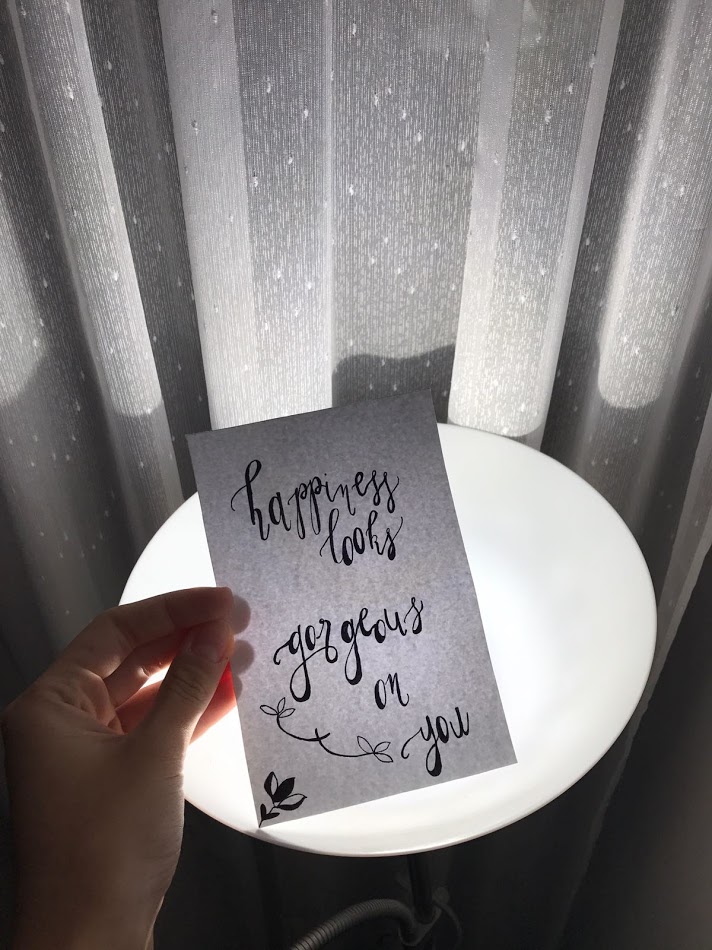 happiness
looks
gorgeous
on
you